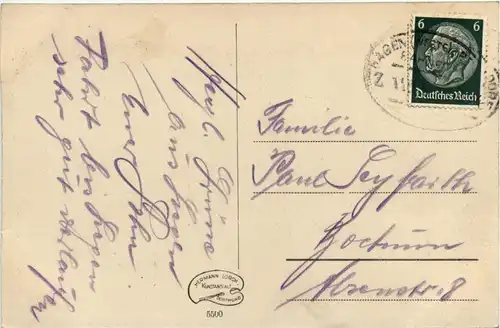 Herzl. Grüße
aus Hagen
Euer Sohn
Fahrt bis Hagen
sehr gut verlaufen
HAGEN
Z
6 6
Deutsches Reich
Familie
Paul Seyfarth
Bochum
Alsenstr. 8
HERMANN LORCH
Kunstanstalt
DORTMUND
5500